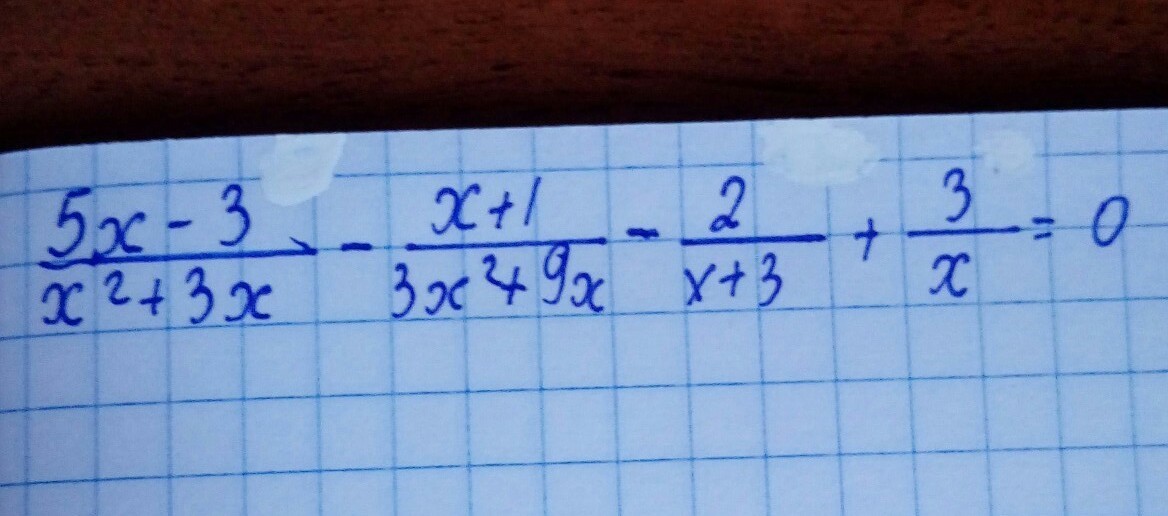 (5x - 3)/(x² + 3x) - (x + 1)/(3x² + 9x) - 2/(x + 3) + 3/x = 0